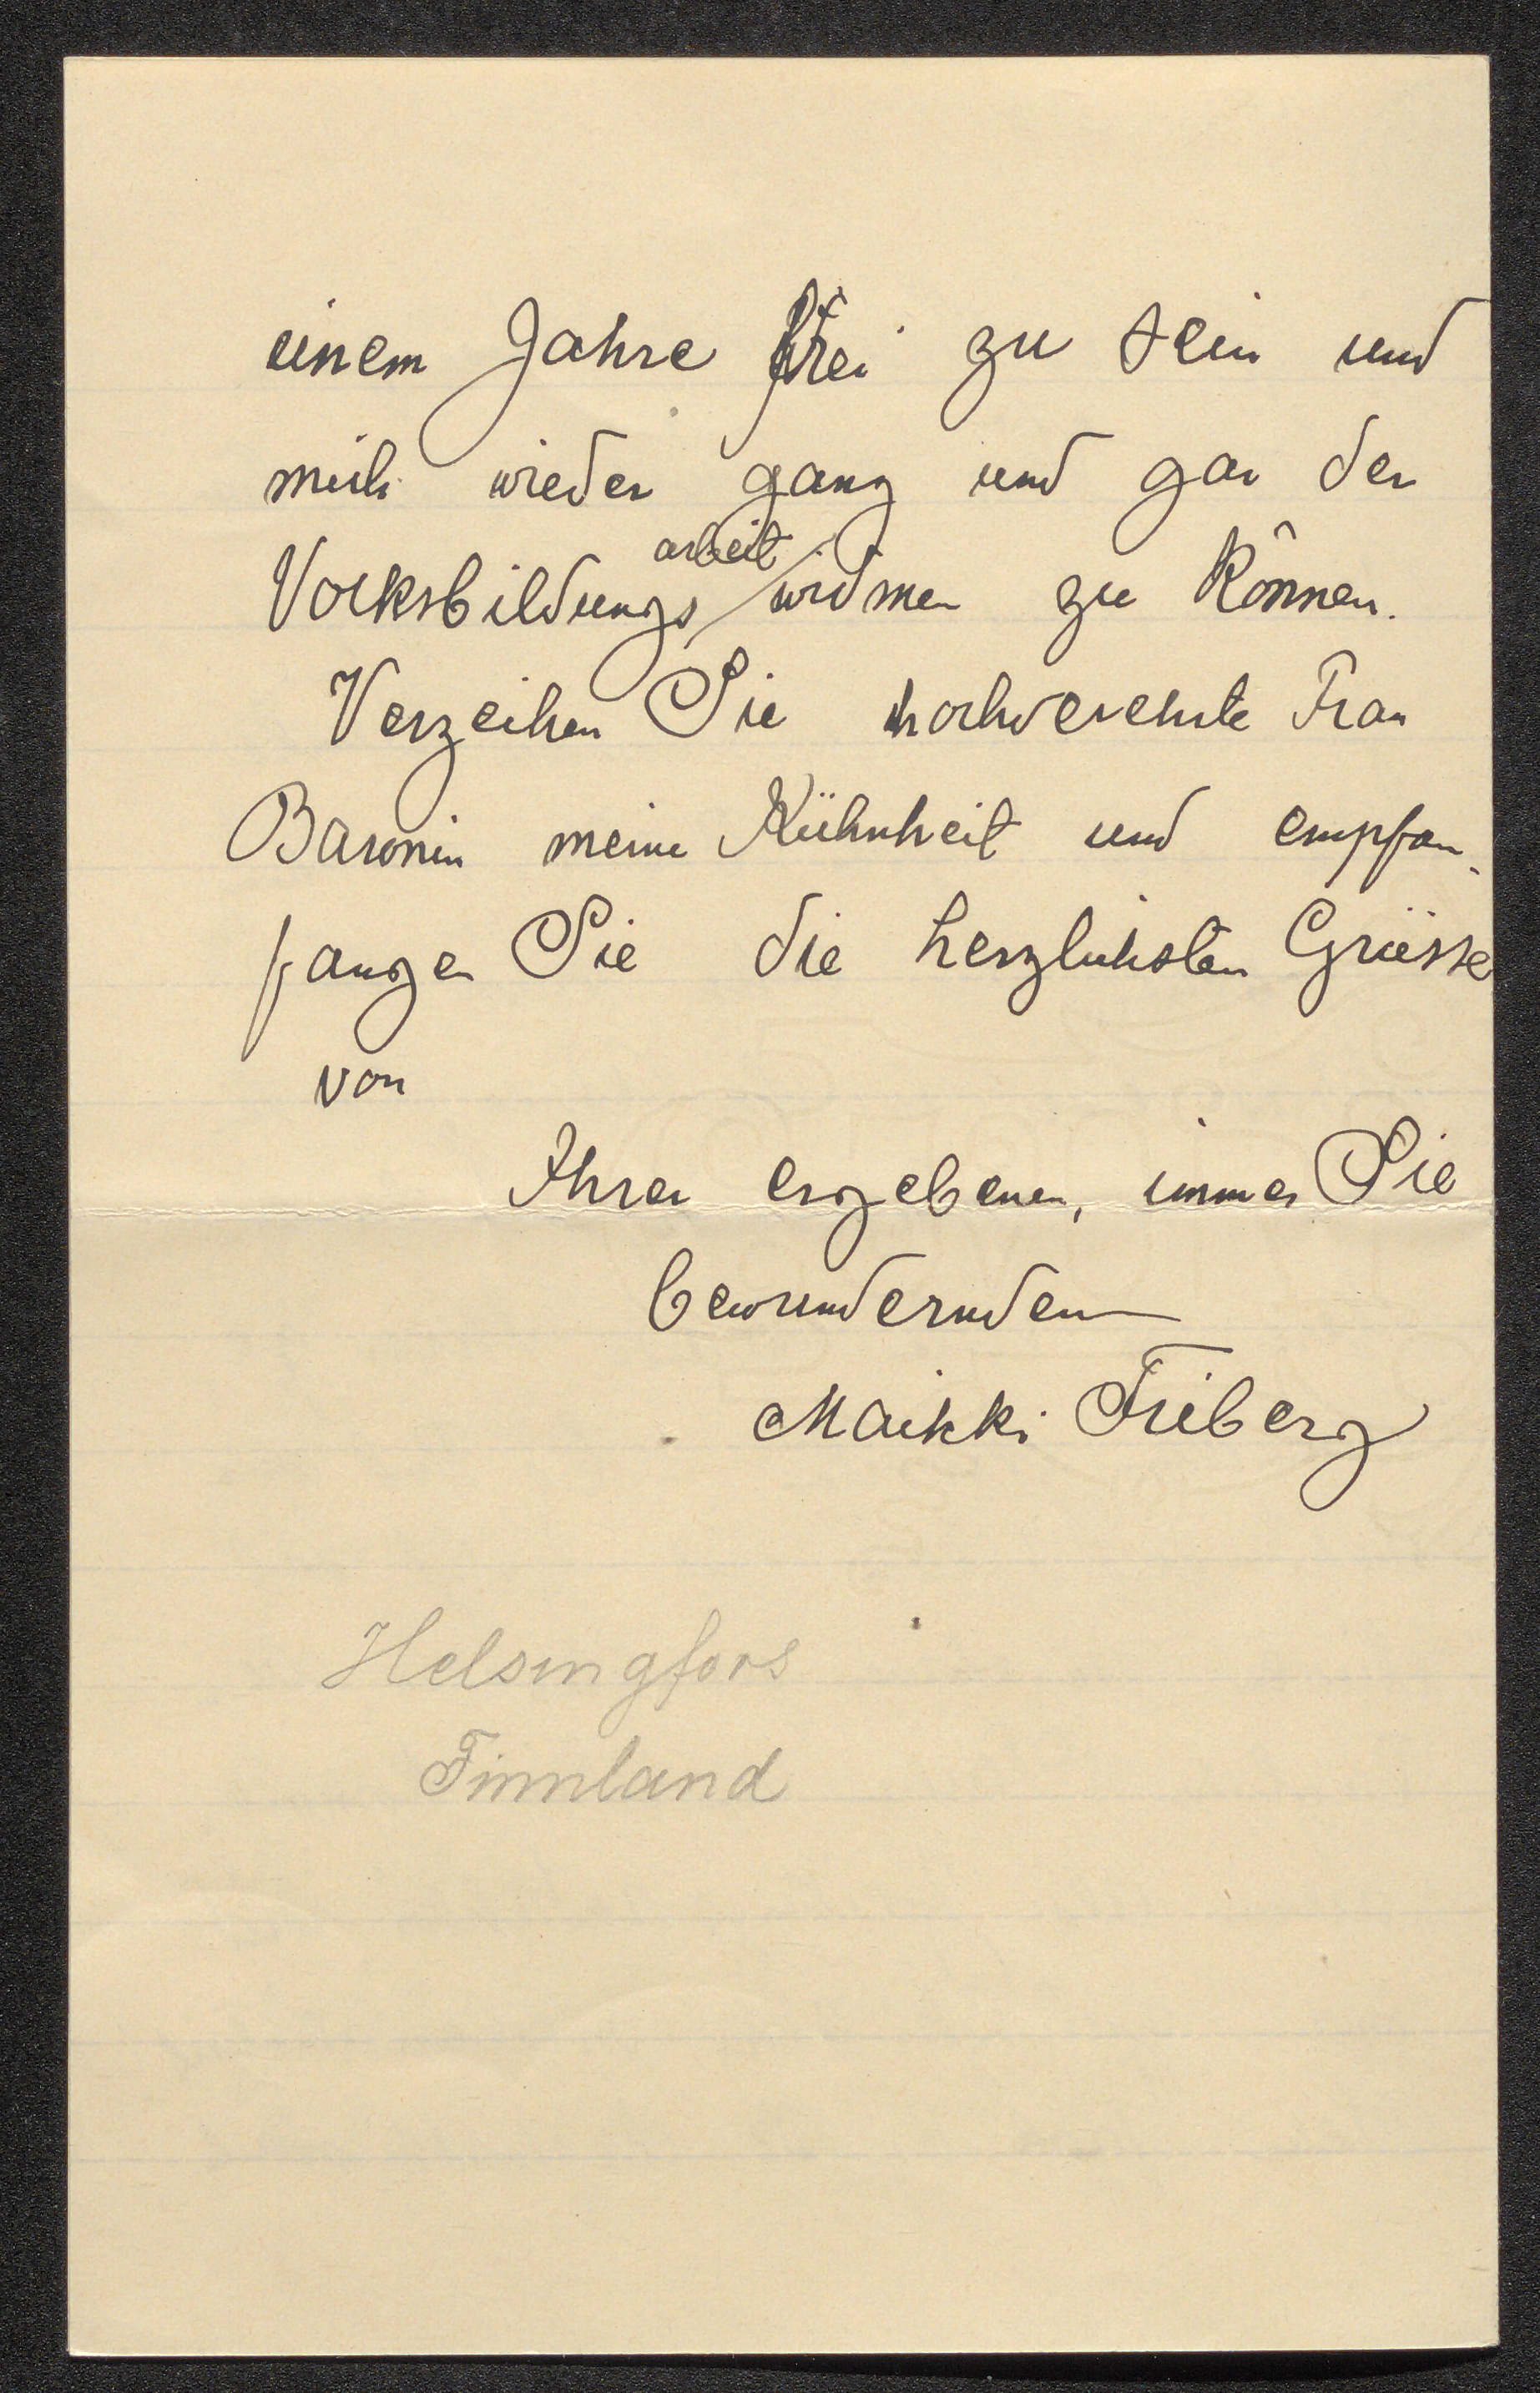 einem Jahre frei zu sein und
mich wieder ganz und gar der
arbeit
Volksbildungs widmen zu können.
Verzeihen Sie hochverehrte Frau
Baronin meine Kühnheit und empfan-
fangen Sie die herzlichsten Grüsse
von
Ihrer ergebenen, immer Sie
bewundernden
Maikki Friberg
Helsingfors
Finnland